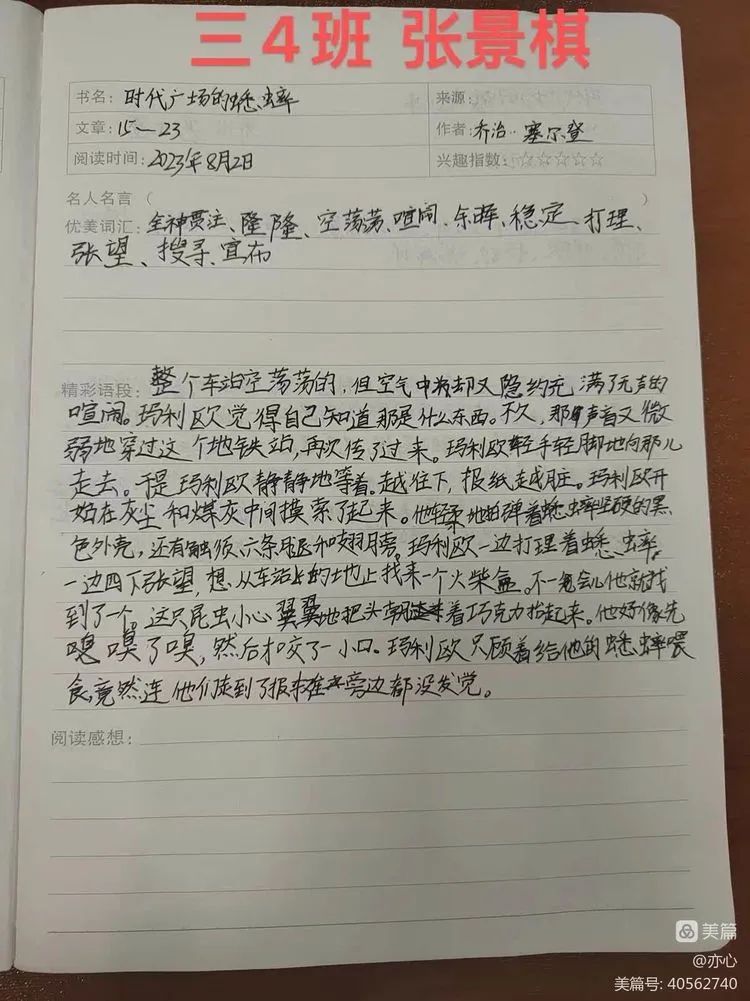 三4班 张景棋
书名: 时代广场的蟋蟀 来源:
文章: 15—23 作者: 乔治·塞尔登
阅读时间: 2023年8月2日 兴趣指数: ☆☆☆☆☆
名人名言 ( )
优美词汇: 全神贯注、隆隆、空荡荡、喧闹、乐晖、稳定、打理、
张望、搜寻、宣布
精彩语段: 整个车站空荡荡的,但空气中却又隐约充满了无声的
喧闹。玛利欧觉得自己知道那是什么东西。不久,那声音又微
弱地穿过这个地铁站,再次传了过来。玛利欧轻手轻脚地向那儿
走去。于是玛利欧静静地等着。越往下,报纸越脏。玛利欧开
始在灰尘和煤灰中间摸索了起来。他轻柔地拍弹着蟋蟀坚硬的黑
色外壳,还有触须、六条腿和翅膀。玛利欧一边打理着蟋蟀,
一边四下张望,想从车站上的土地上找来一个火柴盒。不一会儿他就找
到了一个。这只昆虫小心翼翼地把头朝着巧克力抬起来。他好像先
嗅了嗅,然后才咬了一小口。玛利欧只顾着给他的蟋蟀喂
食,竟然连他们走到了报摊旁边都没发觉。
阅读感想:
美篇
@亦心
美篇号: 40562740